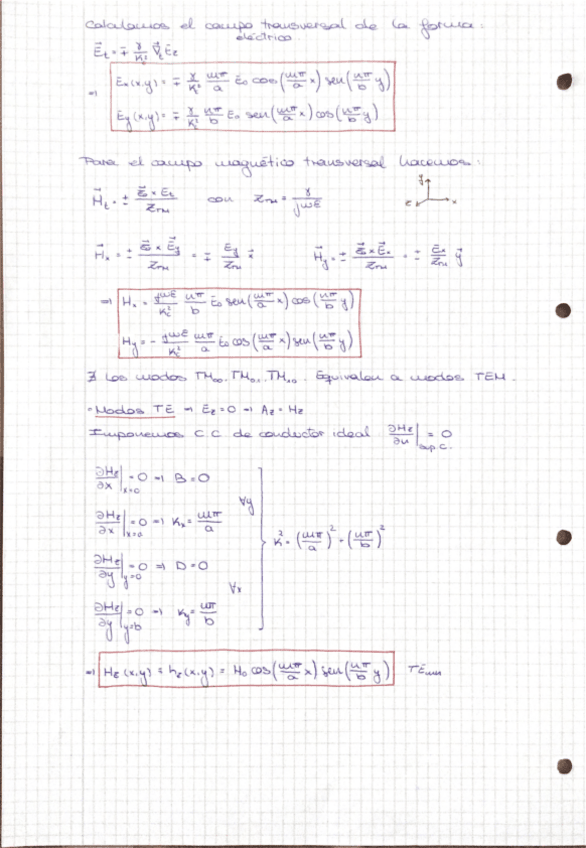 Calculamos el campo transversal de la forma:
eléctrico
E⃗t = ∓ γ/Kc² ∇⃗t Ez
⇒ Ex(x,y) = ∓ γ/Kc² mπ/a E0 cos(mπ/a x) sen(nπ/b y)
Ey(x,y) = ∓ γ/Kc² nπ/b E0 sen(mπ/a x) cos(nπ/b y)
Para el campo magnético transversal hacemos:
H⃗t = ± z⃗0 × E⃗t / ZTM con ZTM = γ/jωε
y
z x
H⃗x = ± z⃗0 × E⃗y / ZTM = ∓ Ey/ZTM x⃗ H⃗y = ± z⃗0 × E⃗x / ZTM = ± Ex/ZTM y⃗
⇒ Hx = jωε/Kc² nπ/b E0 sen(mπ/a x) cos(nπ/b y)
Hy = - jωε/Kc² mπ/a E0 cos(mπ/a x) sen(nπ/b y)
∄ Los modos TM00, TM01, TM10. Equivalen a modos TEM.
- Modos TE ⇒ Ez = 0 ⇒ Az = Hz
Imponemos C.C de conductor ideal ∂Hz/∂n | sup.C. = 0
∂Hz/∂x | x=0 = 0 ⇒ B = 0
∀y
∂Hz/∂x | x=a = 0 ⇒ Kx = mπ/a
Kc² = (mπ/a)² + (nπ/b)²
∂Hz/∂y | y=0 = 0 ⇒ D = 0
∀x
∂Hz/∂y | y=b = 0 ⇒ Ky = nπ/b
⇒ Hz(x,y) = hz(x,y) = H0 cos(mπ/a x) sen(nπ/b y) TEmn